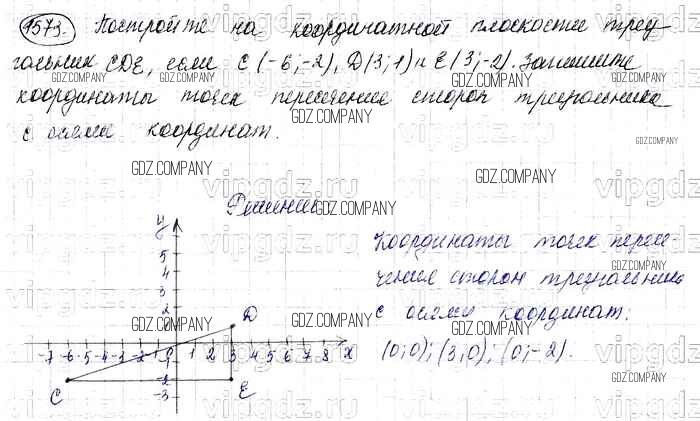 1573. Постройте на координатной плоскости треу-
гольник CDE, если C (-6;-2), D(3;1) и E(3;-2). Запишите
координаты точек пересечение сторон треугольника
с осями координат.
GDZ.COMPANY
Решение:
Координаты точек пересе-
чение сторон треугольника
с осями координат:
(0;0); (3;0); (0;-2).
y
5
4
3
2
D
-7 -6 -5 -4 -3 -2 -1 0 1 2 3 4 5 6 7 8 x
-2
-3
C
E
vipgdz.ru